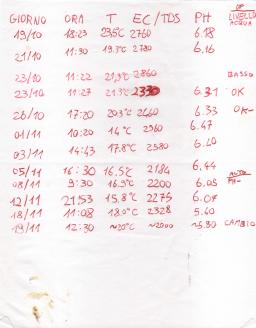 GIORNO ORA T EC/TDS PH LIVELLO ACQUA
19/10 18:23 23.5°C 2760 6.18
21/10 11:30 19.3°C 2780 6.16
23/10 11:22 21,3°C 2860 BASSO
23/10 11:27 21.3°C 6.31 OK
26/10 17:20 20.3°C 2460 6.33 OK-
01/11 10:20 14°C 2360 6.47
03/11 14:43 17.8°C 2380 6.40
05/11 16:30 16.5°C 2184 6.44
08/11 9:30 16.9°C 2200 6.05 PH-
12/11 21:53 15.8°C 2275 6.07
18/11 11:08 18.0°C 2328 5.60
19/11 12:30 ~20°C ~2000 ~5.30 CAMBIO